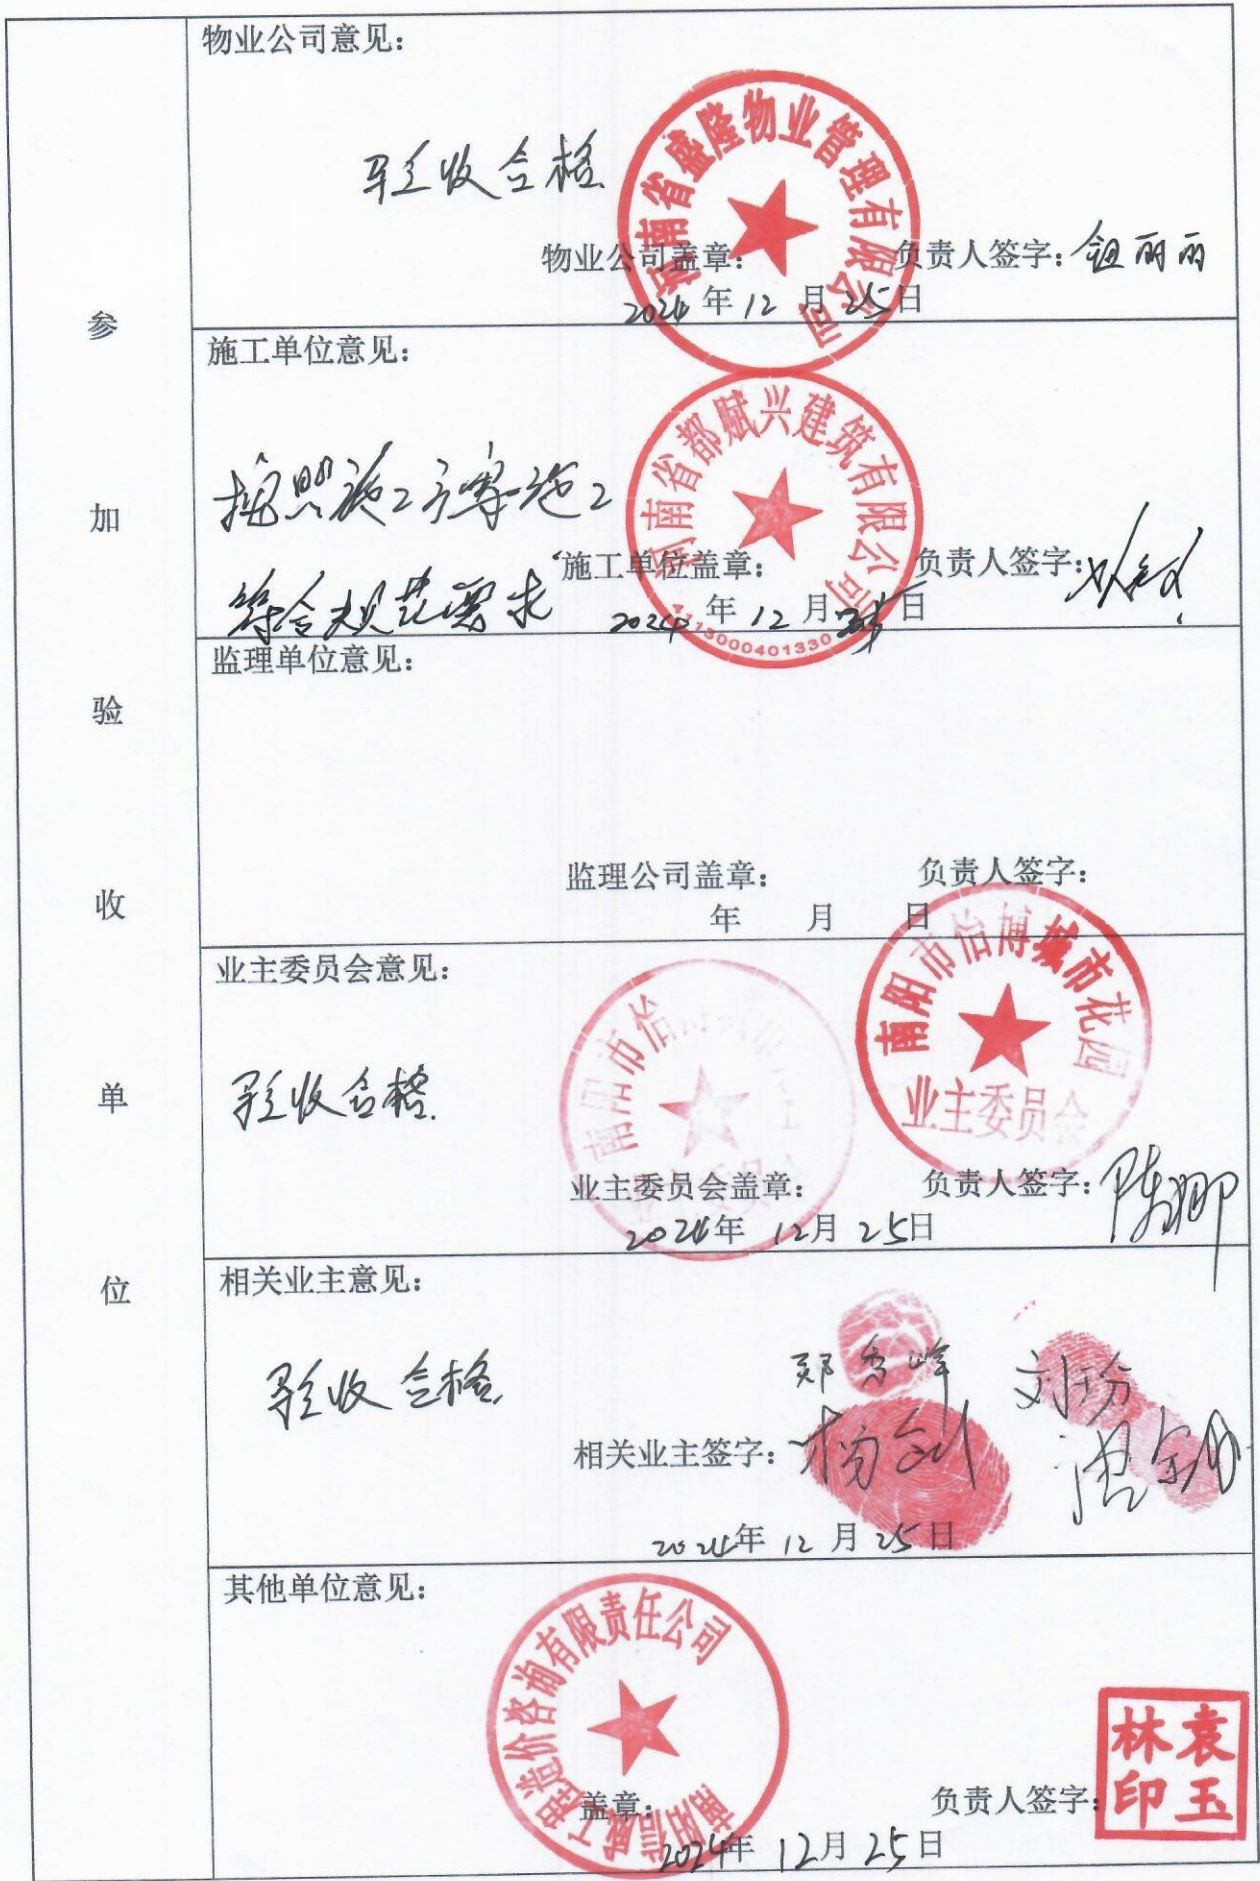 参加验收单位
物业公司意见：
验收合格
河南省盛隆物业管理有限公司
物业公司盖章： 负责人签字：钮丽丽
2024年12月25日
施工单位意见：
按照施工方案施工
符合规范要求
河南省都赋兴建筑有限公司
4113000401330
施工单位盖章： 负责人签字：
2024年12月日
监理单位意见：
监理公司盖章： 负责人签字：
年 月 日
业主委员会意见：
验收合格
南阳市怡
南阳市怡博城市花园
业主委员会
业主委员会盖章： 负责人签字：陈娜
2024年12月25日
相关业主意见：
验收合格
郑 峰 刘玢
相关业主签字：杨剑
2024年12月25日
其他单位意见：
南阳信威工程造价咨询有限责任公司
袁玉林印
盖章： 负责人签字：
2024年12月25日